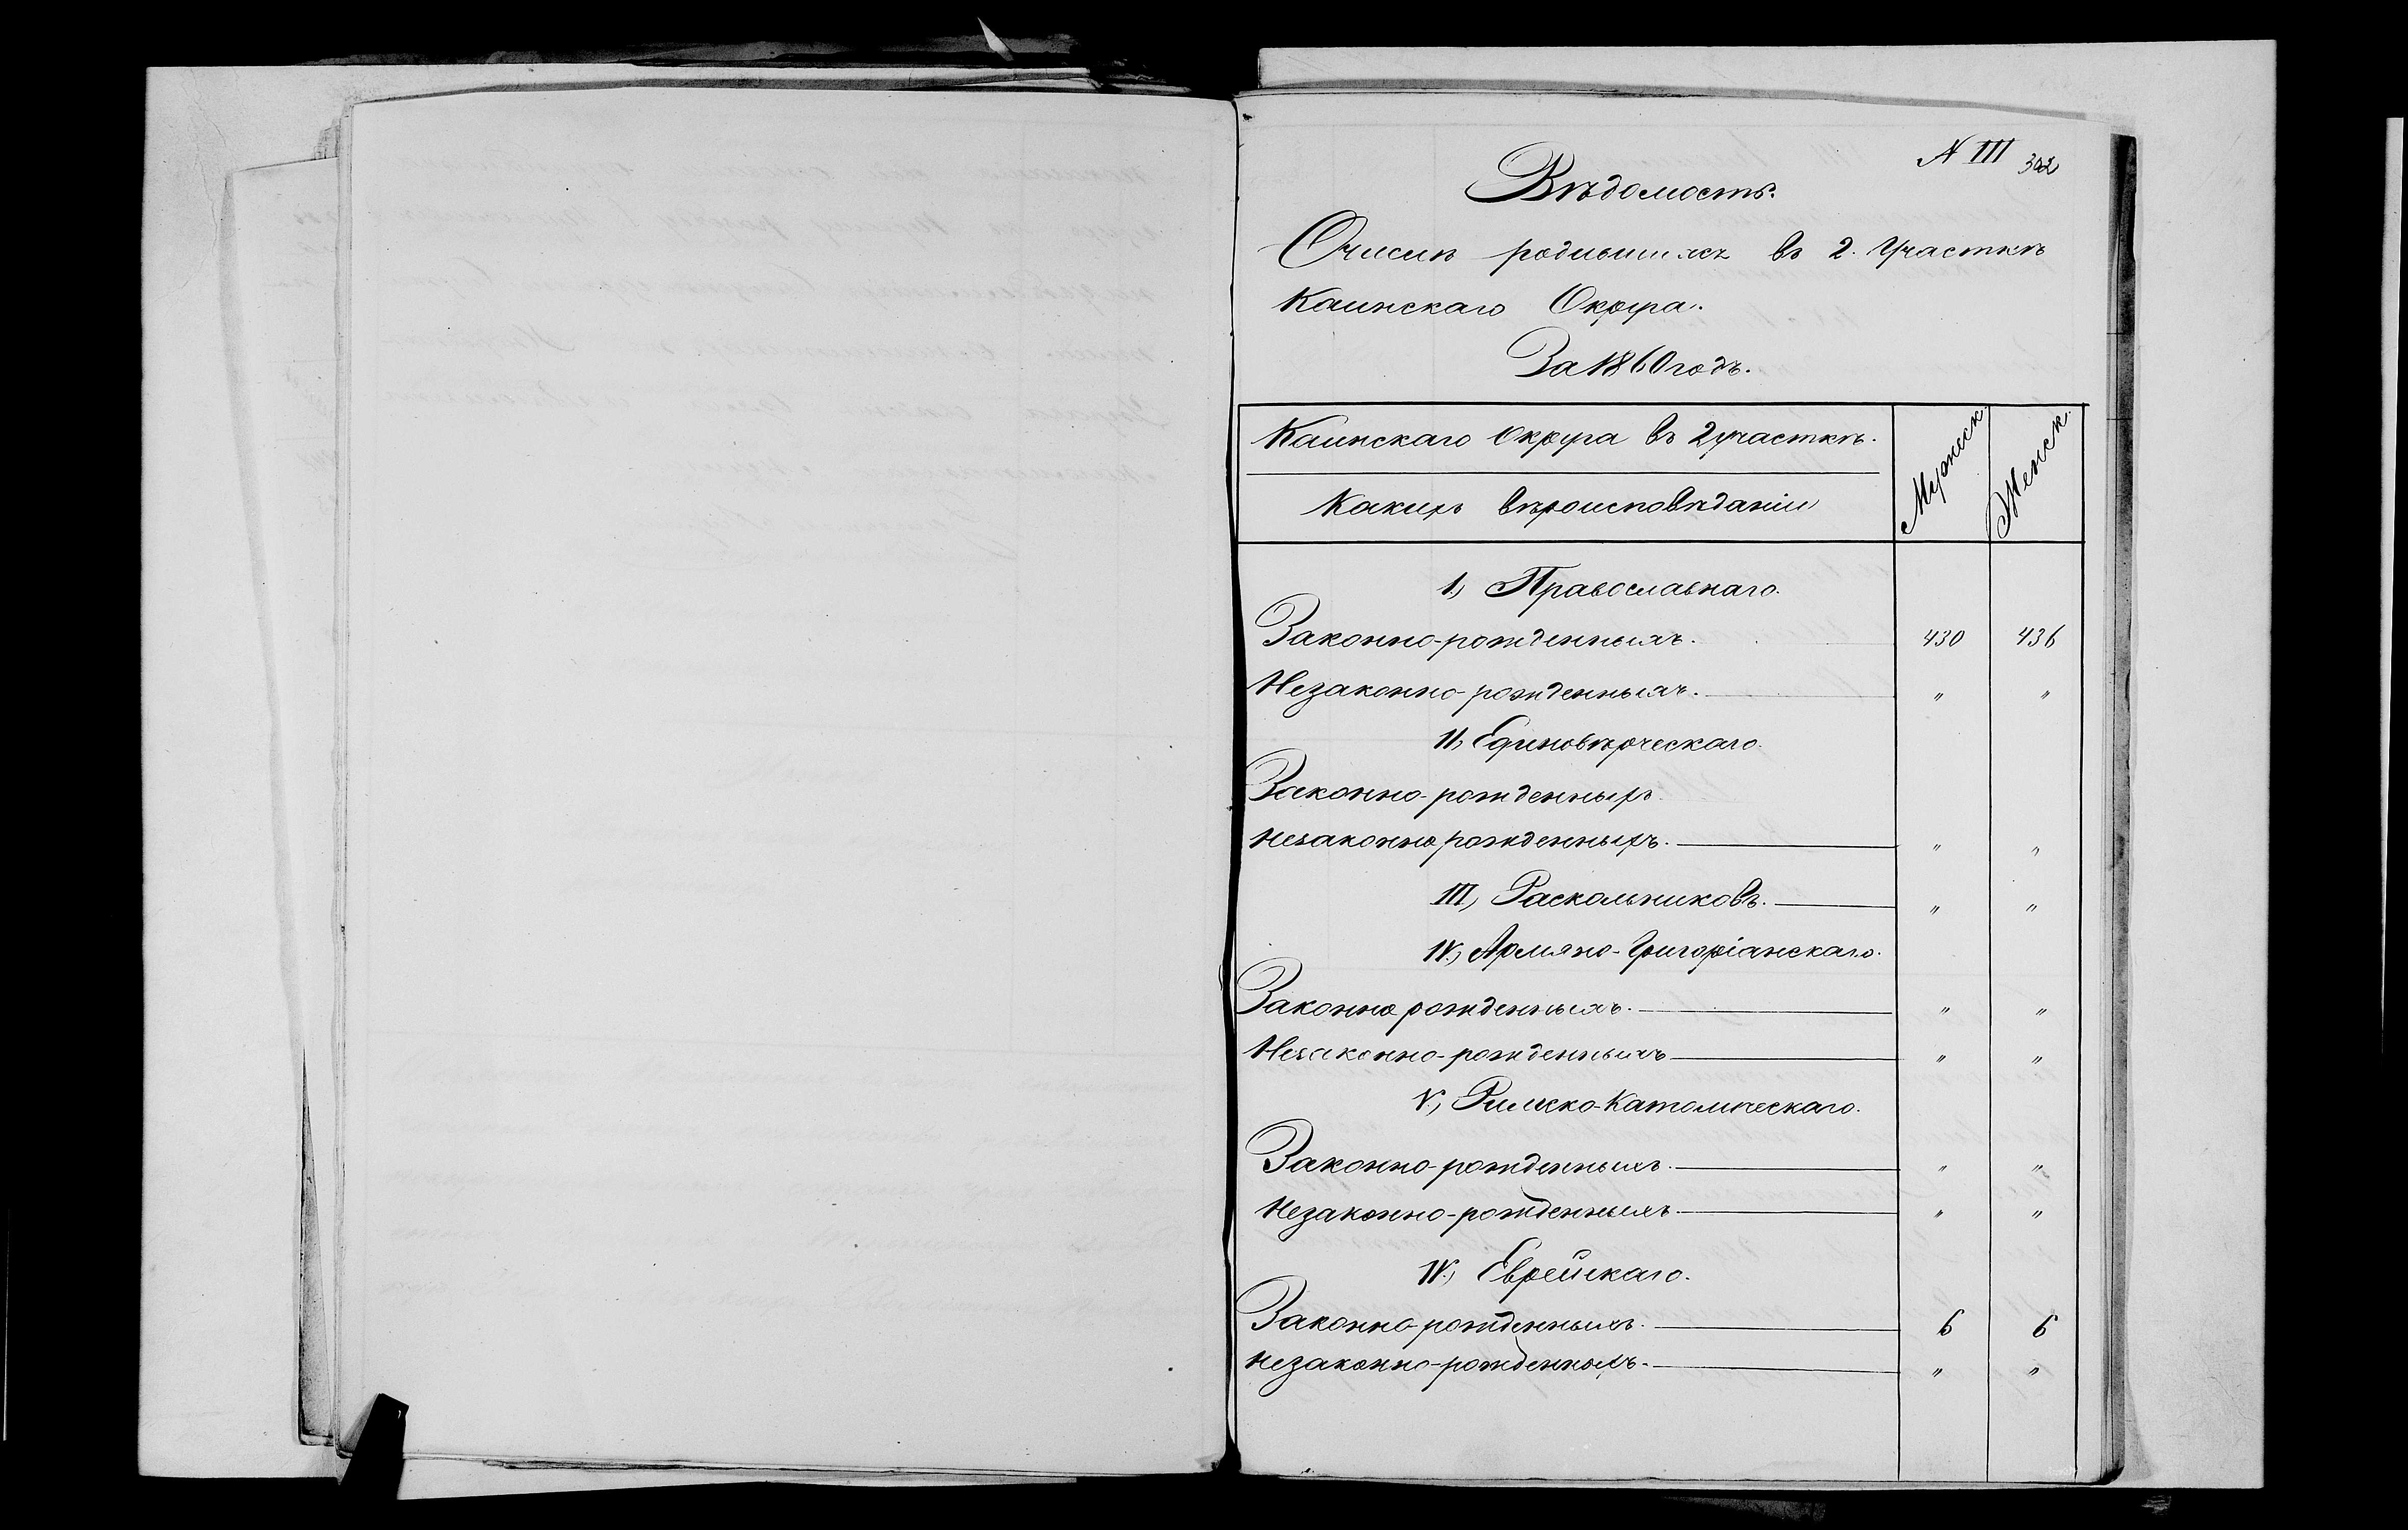 N III 302
Вѣдомость.
О числѣ родившихся въ 2. Участкѣ
Каинскаго Округа.
За 1860 годъ.
Каинскаго Округа въ 2 участкѣ. Мужеск. Женск.
Какихъ вѣроисповѣданіи
1, Православнаго.
Законно-рожденныхъ. 430 436
Незаконно-рожденныхъ. — " "
II, Единовѣрческаго.
Законно-рожденныхъ.
Незаконно рожденныхъ. — " "
III, Раскольниковъ. — " "
IV, Армяно-Григоріанскаго.
Законно рожденныхъ. — " "
Незаконно-рожденныхъ — " "
V, Римско-Католическаго.
Законно-рожденныхъ. — " "
Незаконно-рожденныхъ. — " "
IV, Еврейскаго.
Законно-рожденныхъ. — 6 6
Незаконно-рожденныхъ. — " "